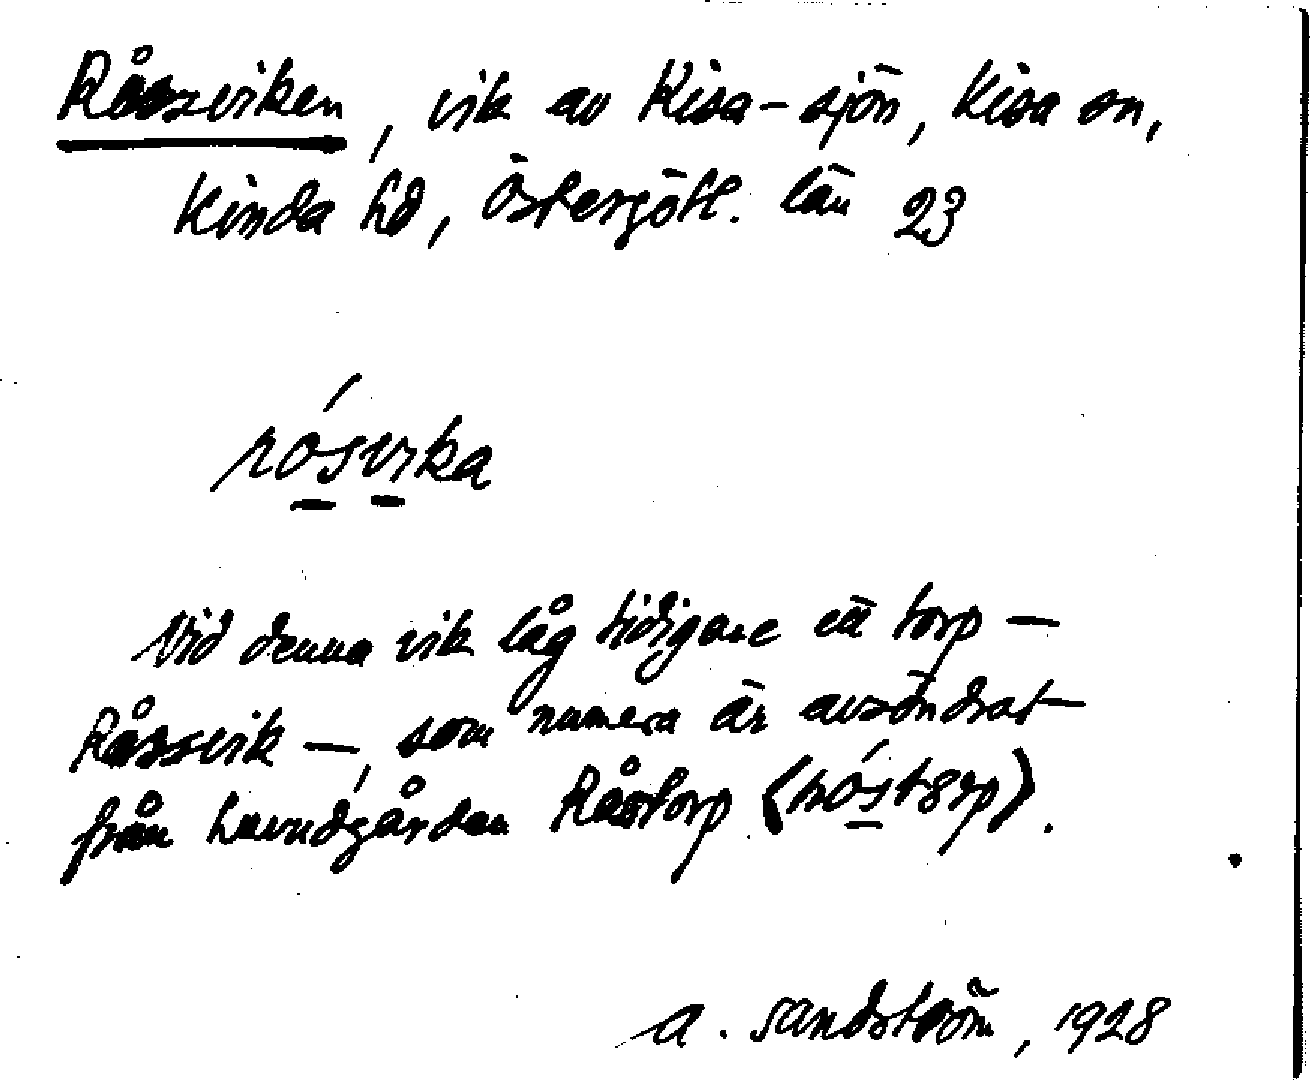 Råssviken, vik av Kisa-sjön, Kisa sn,
Kinda hd, Östergötl. län 23
rósvıka
Vid denna vik låg tidigare ett torp —
Råssvik —, som numera är avsöndrat
från huvudgården Råstorp (róstərp).
A. Sandström, 1928